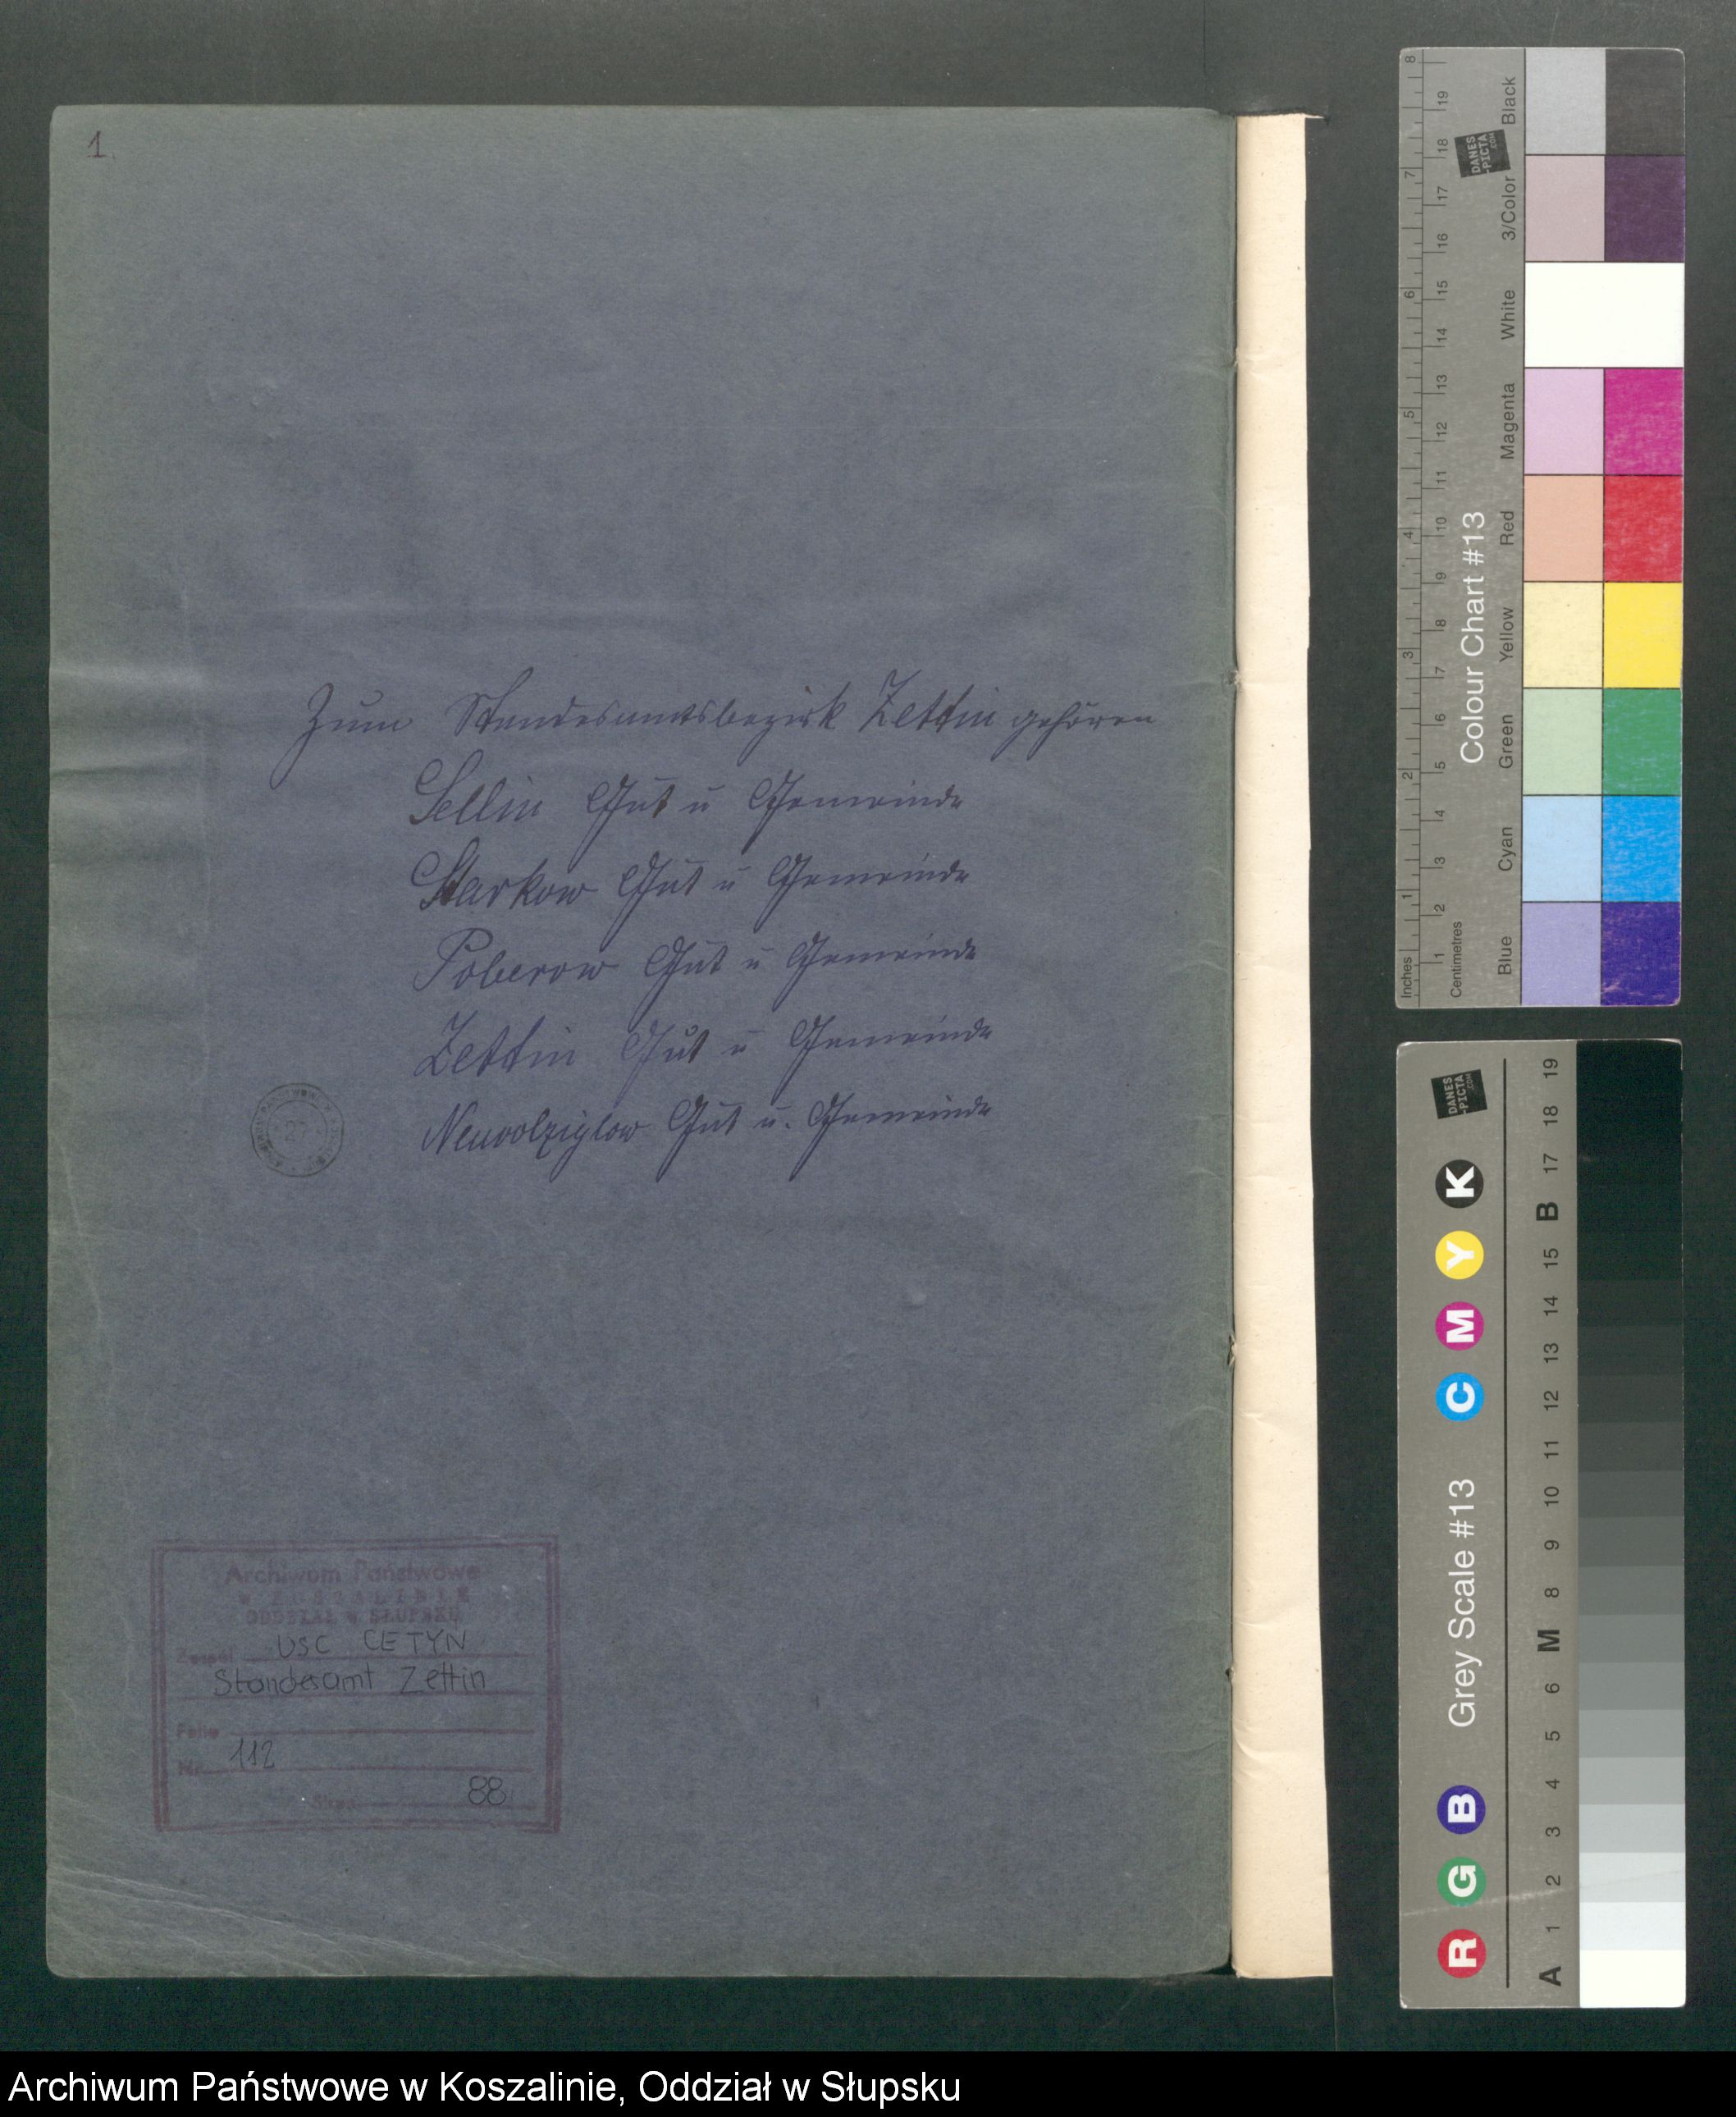 1.
Zum Standesamtsbezirk Zettin gehören
Sellin Gut u Gemeinde
Starkow Gut u Gemeinde
Poberow Gut u Gemeinde
Zettin Gut u Gemeinde
Neuvolziglow Gut u. Gemeinde
Archiwum Państwowe
w KOSZALINIE
ODDZIAŁ w SŁUPSKU
Zespół USC CETYN
Standesamt Zettin
Nr. 112
88
Inches
Centimetres
1 2 3 4 5 6 7 8
1 2 3 4 5 6 7 8 9 10 11 12 13 14 15 16 17 18 19
DANES
-PICTA
.COM
Colour Chart #13
Blue Cyan Green Yellow Red Magenta White 3/Color Black
R G B Grey Scale #13 C M Y K
DANES
-PICTA
.COM
A 1 2 3 4 5 6 M 8 9 10 11 12 13 14 15 B 17 18 19
Archiwum Państwowe w Koszalinie, Oddział w Słupsku